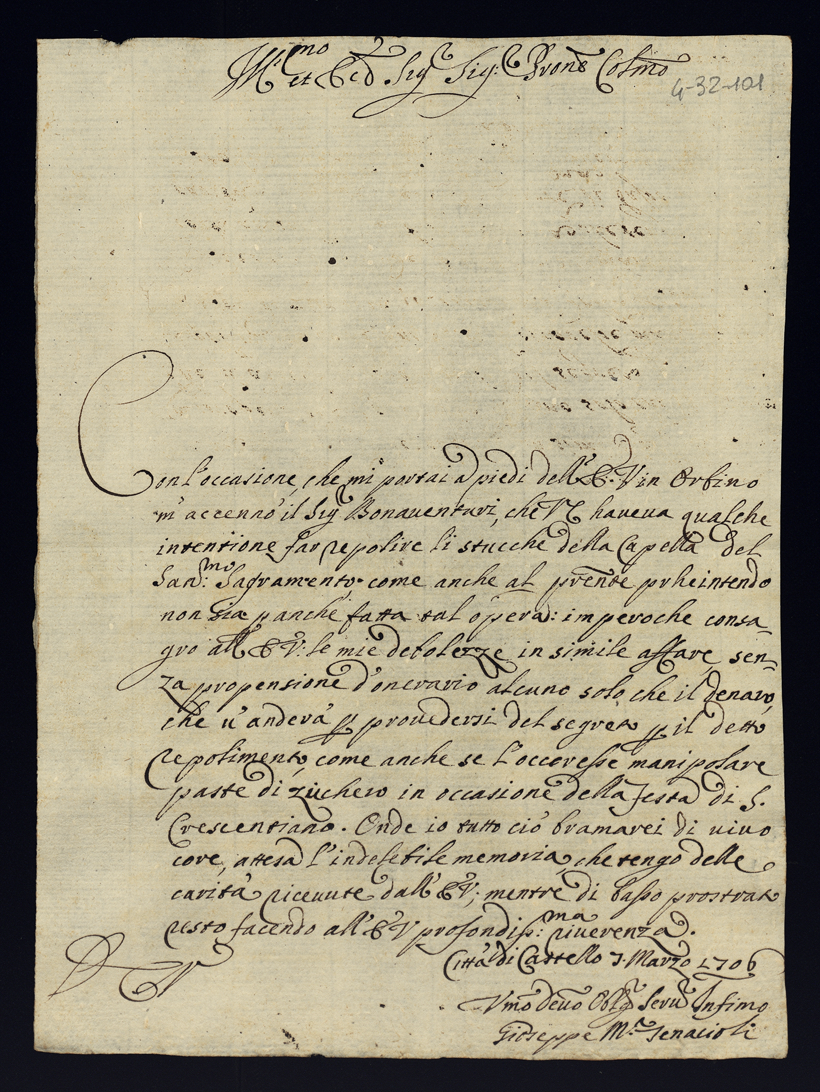 Ill.mo et Ecc Sig.r Sig:r Prone Colmo
4-32-101
Con l'occasione, che mi portai a piedi dell'E. V in Orbino
m'accennò il Sig.r Bonauenturi, che haueua qualche
intentione far repolire li stucchi della Capella del
San:mo Sagramento come anche al prente intendo
non sia p anche fatta tal opera: imperoche consa-
gro all'E V: le mie debolezze in simile affare, sen-
za propensione d'onerario alcuno solo che il denaro,
che u'anderà p prouedersi del segreto p il detto
repolimento, come anche se l'occoresse manipolare
paste di zuchero in occasione della festa di S.
Crescentiano. Onde io tutto ciò bramarei di uiuo
core, attesa l'indelebile memoria, che tengo delle
carità riceuute dall'E V; mentre di basso prostrato
resto facendo all'E V profondiss:ma riuerenza.
Città di Castello 7 Marzo 1706
E V
Vmo Deuo Oblg Seru Infimo
Gioseppe M.a